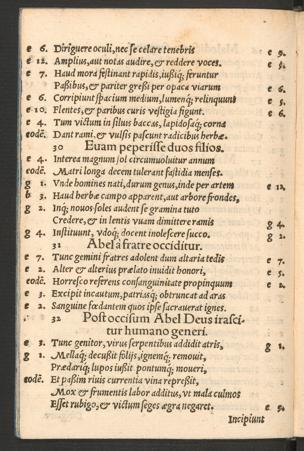 e 6. Diriguere oculi, nec se celare tenebris e 9.
e 12. Amplius, aut notas audire, & reddere voces. e 5.
e 7. Haud mora festinant rapidis, iußiq; feruntur
Paßibus, & pariter greßi per opaca viarum e 6.
e 6. Corripiunt spacium medium, lumenq; relinquunt e 5.
e 10. Flentes, & paribus curis vestigia figunt. e 6.
e 4. Tum victum in siluis baccas, lapidosaq; corna
eodē. Dant rami, & vulsis pascunt radicibus herbæ.
30 Euam peperisse duos filios.
e 4. Interea magnum sol circumuoluitur annum
eodē. Matri longa decem tulerant fastidia menses.
g 1. Vnde homines nati, durum genus, inde per artem e 12.
b 3. Haud herbæ campo apparent, aut arbore frondes,
g 2. Inq; nouos soles audent se gramina tuto
Credere, & in lentis vuam dimittere ramis g 4.
g 4. Instituunt, vdoq; docent inolescere succo. g 2.
31 Abel a fratre occiditur.
e 7. Tunc gemini fratres adolent dum altaria tedis e 7.
e 2. Alter & alterius prælato inuidit honori, e 5.
eodē. Horresco referens consanguinitate propinquum e 2.
e 3. Excipit incautum, patriasq; obtruncat ad aras
e 2. Sanguine fœdantem quos ipse sacrauerat ignes.
32 Post occisum Abel Deus irasci-
tur humano generi.
e 3. Tunc genitor, virus serpentibus addidit atris, g 1.
g 1. Mellaq; decußit folijs, ignemq; remouit,
Prædariq; lupos iußit pontumq; moueri,
eodē. Et passim riuis currentia vina repressit,
Mox & frumentis labor additus, vt mala culmos
Esset rubigo, & victum seges ægra negaret. e 5.
Incipiunt